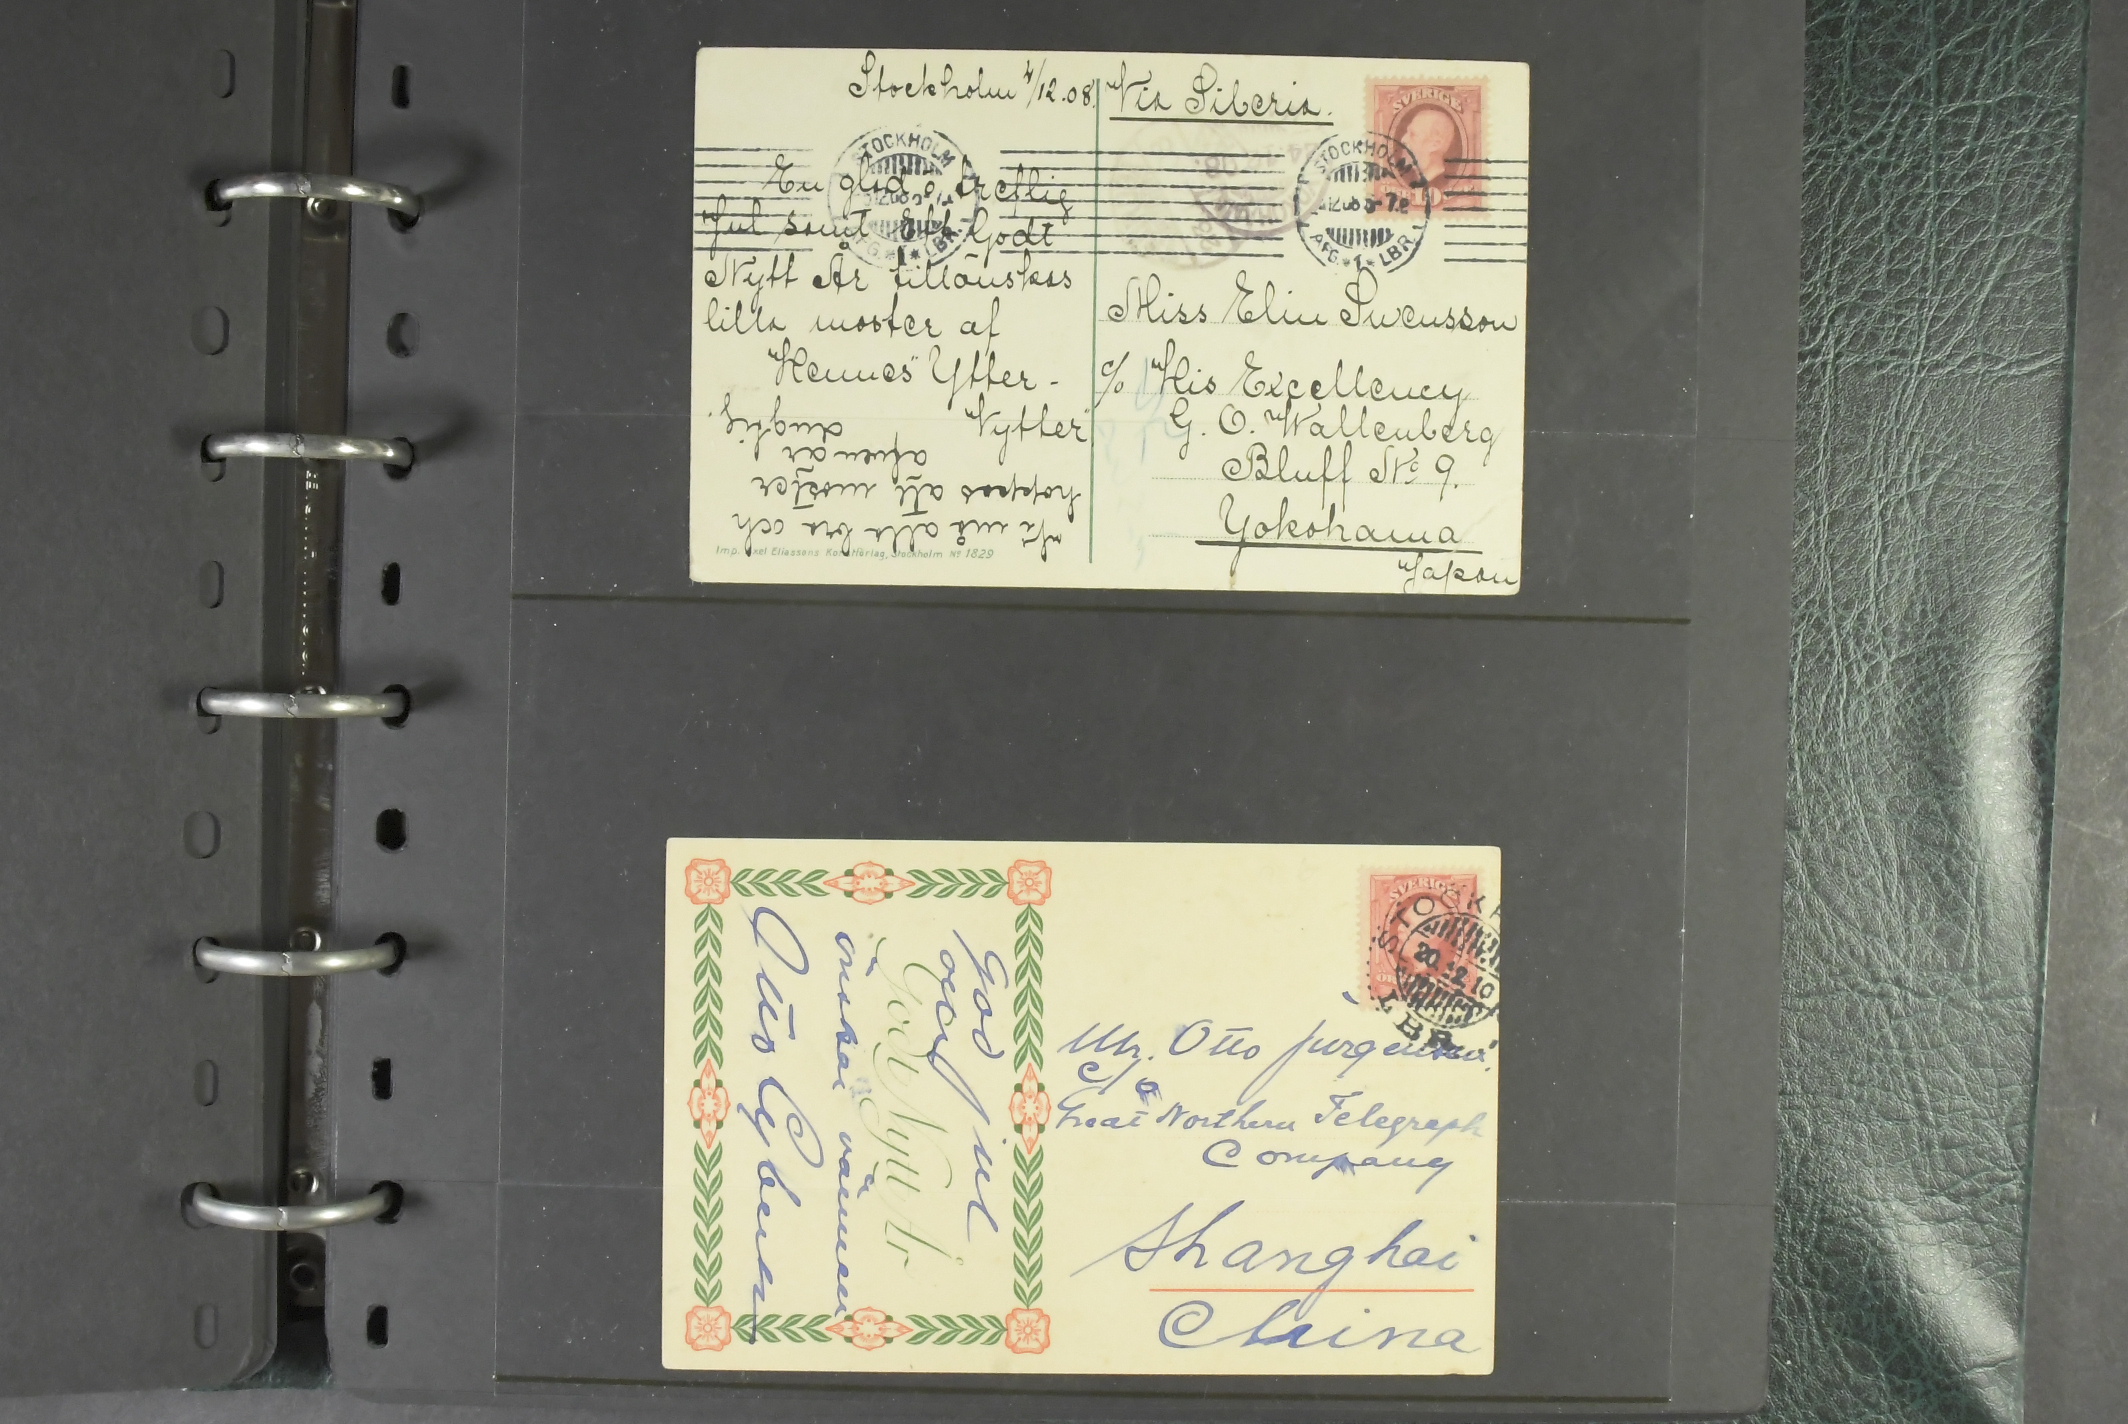 Stockholm 4/12.08.
Via Siberia.
SVERIGE
10
STOCKHOLM
AFG.*1*LBR.
STOCKHOLM
AFG.*1*LBR.
En glad o. treflig
Jul samt Ett Godt
Nytt År tillönskas
lilla moster af
"Hennes" Ytter-
"Nytter"
Vi må alla bra och
hoppas att moster
äfven är
duglig.
Imp. Axel Eliassons Konstförlag, Stockholm No 1829
Miss Elin Swensson
c/o His Excellency
G. O. Wallenberg
Bluff No 9.
Yokohama
Japan
SVERIGE
STOCKH
20.12.10
LBR.
God
jul
Godt Nytt År
önskar vännen
Mr. Otto Jürgensen.
c/o
Great Northern Telegraph
Company
Shanghai
China